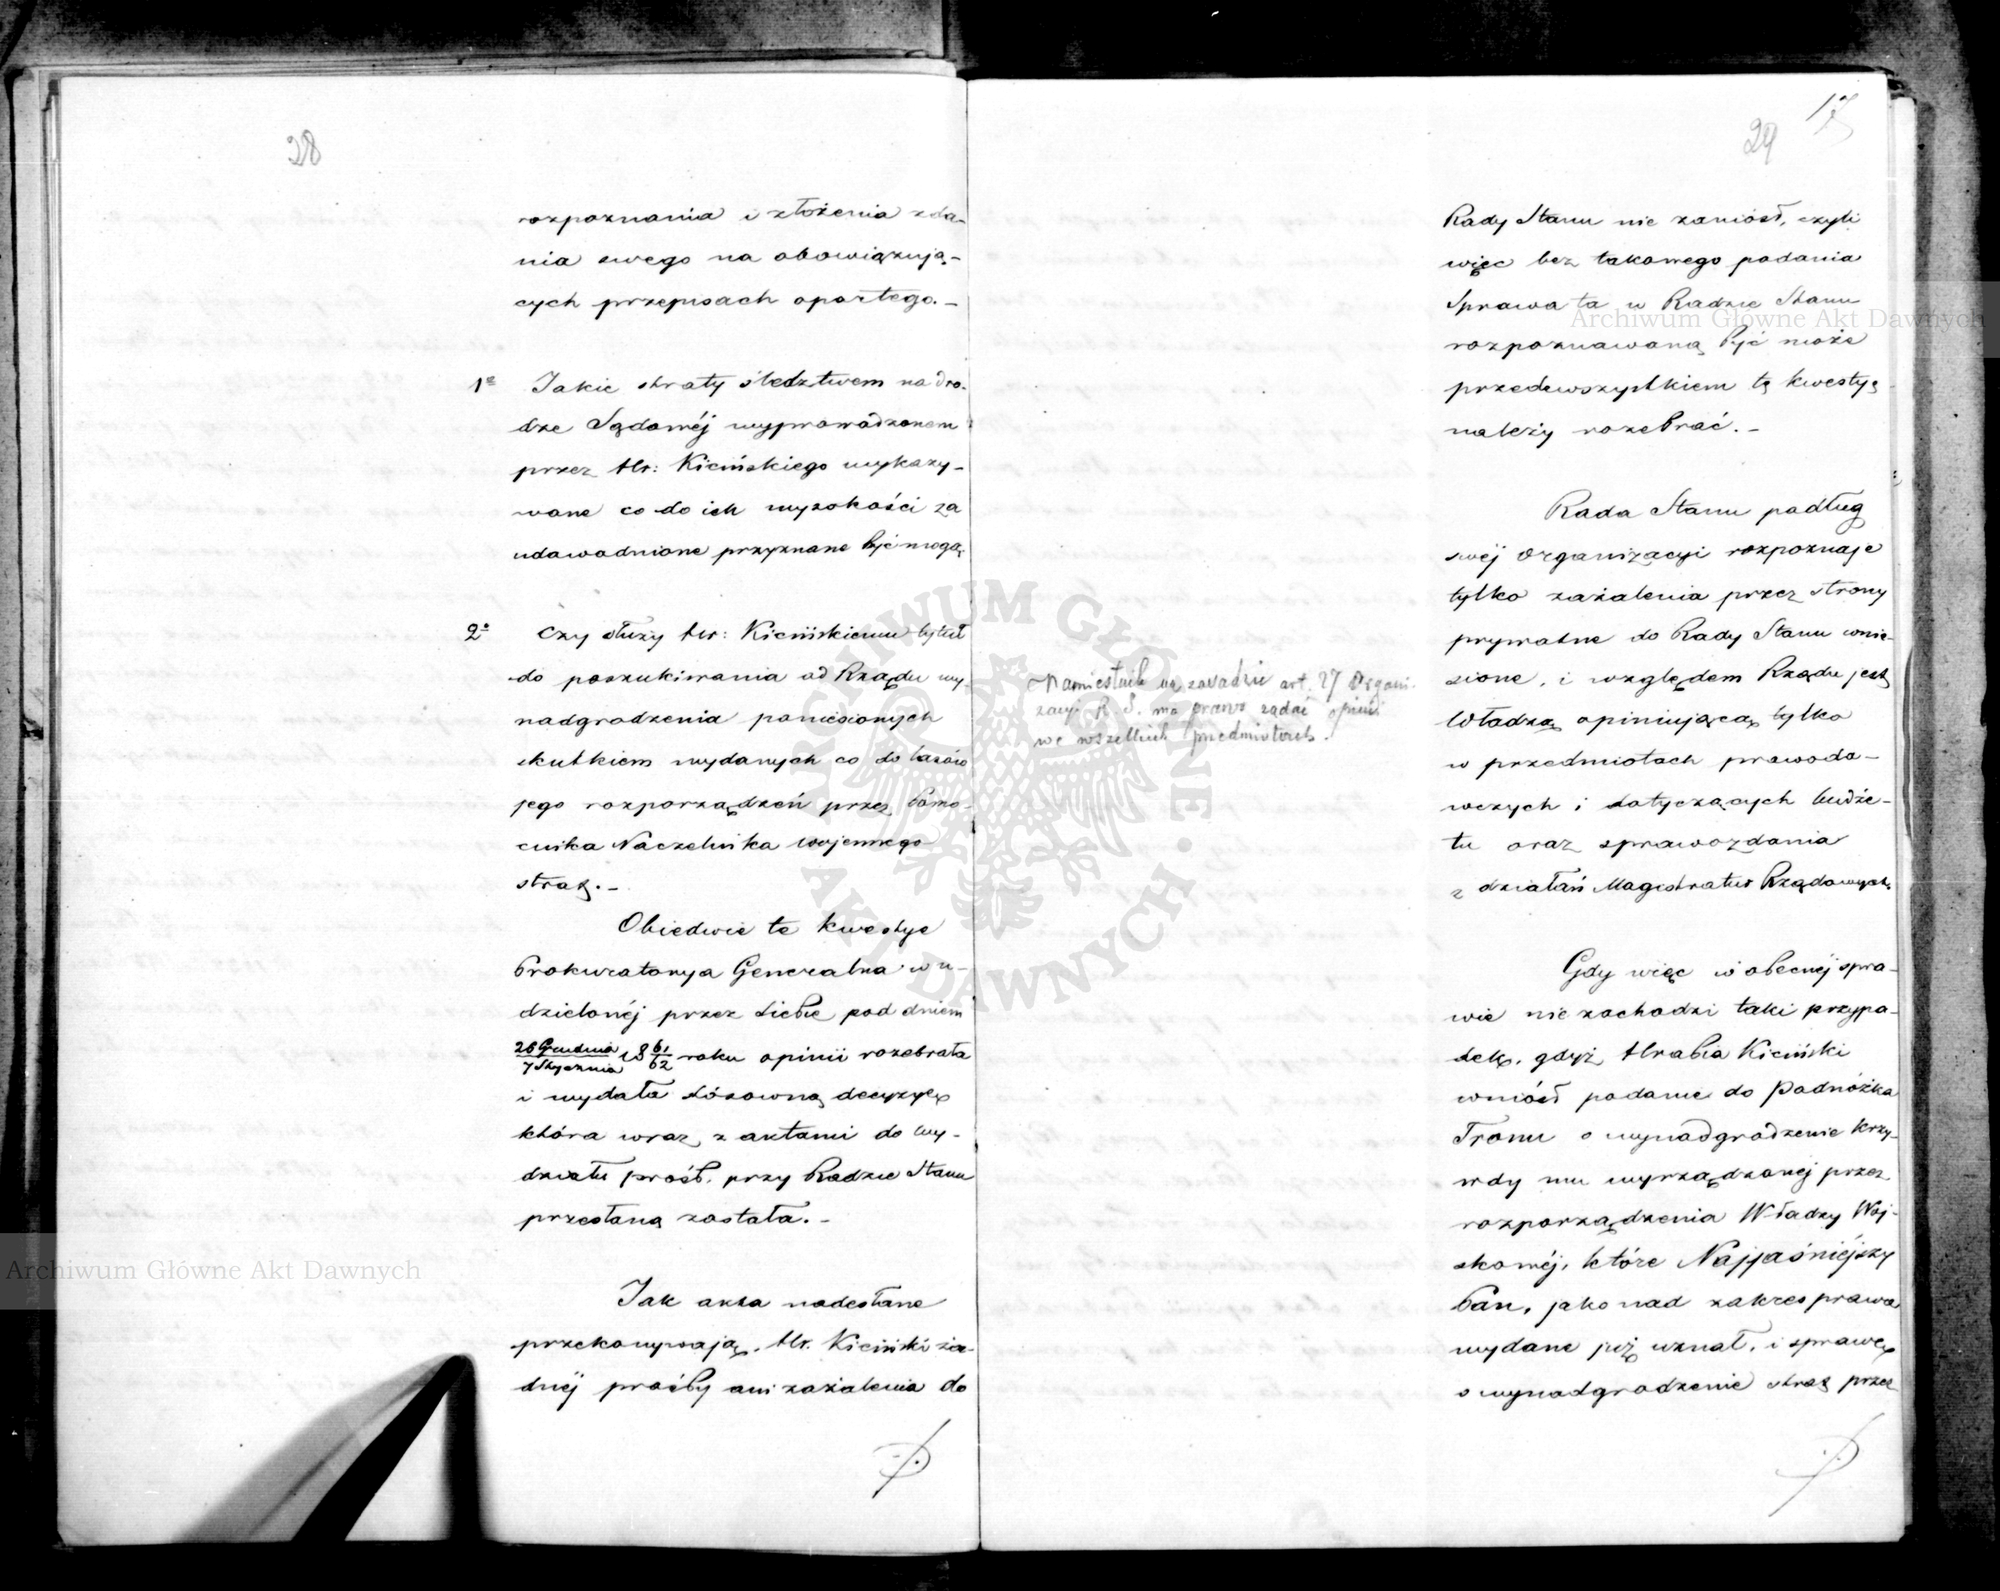 28
rozpoznania i złożenia zda-
nia swego na obowiązują-
cych przepisach opartego.-
1e Jakie straty śledztwem na dro-
dze Sądowéj wyprowadzonem
przez Hr: Kicińskiego wykazy-
wane co do ich wysokości za
udowodnione przyznane być mogą
2e Czy służy Hr: Kicińskiemu tytuł
do poszukiwania od Rządu wy-
nadgrodzenia poniesionych
skutkiem wydanych co do lasów
jego rozporządzeń przez Pomo-
cnika Naczelnika Wojennego
strat.-
Obiedwie te kwestye
Prokuratorya Generalna w u-
dzielonéj przez siebie pod dniem
26 Grudnia / 7 Stycznia 18 61/62 roku opinii rozebrała
i wydała stósowną decyzyę
która wraz z aktami do Wy-
działu próśb, przy Radzie Stanu
przesłaną została.-
Jak akta nadesłane
przekonywają, Hr. Kiciński ża-
dnéj prośby ani zażalenia do
17
29
Rady Stanu nie zaniósł, czyli
więc bez takowego podania
Sprawa ta w Radzie Stanu
rozpoznawaną być może
przedewszystkiem tę kwestyę
należy rozebrać.-
Rada Stanu podług
swéj Organizacyi rozpoznaje
tylko zażalenia przez strony
prywatne do Rady Stanu wnie-
sione, i względem Rządu jest
Władzą opiniującą tylko
w przedmiotach prawoda-
wczych i dotyczących budże-
tu oraz sprawozdania
z działań Magistratur Rządowych.
Namiestnik na zasadzie art. 27 Organi-
zacyi R. S. ma prawo żądać opinii
we wszelkich przedmiotach.
Gdy więc w obecnéj spra-
wie nie zachodzi taki przypa-
dek, gdyż Hrabia Kiciński
wniósł podanie do Podnóżka
Tronu o wynadgrodzenie krzy-
wdy mu wyrządzonéj przez
rozporządzenia Władzy Woj-
skowéj, które Najjaśniéjszy
Pan, jako nad zakres prawa
wydane już uznał, i sprawę
o wynadgrodzenie strat przez
Archiwum Główne Akt Dawnych
Archiwum Główne Akt Dawnych
ARCHIWUM GŁÓWNE AKT DAWNYCH